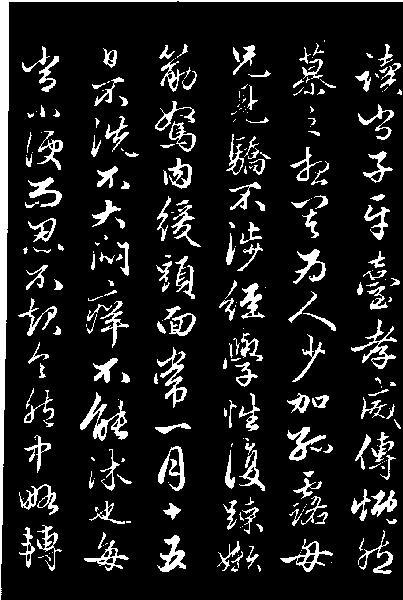 讀尚子平臺孝威傳慨然
慕之想其為人少加孤露母
兄見驕不涉經學性復疎嬾
筋駑肉緩頭面常一月十五
日不洗不大悶痒不能沐也每
當小便而忍不起令胞中略轉